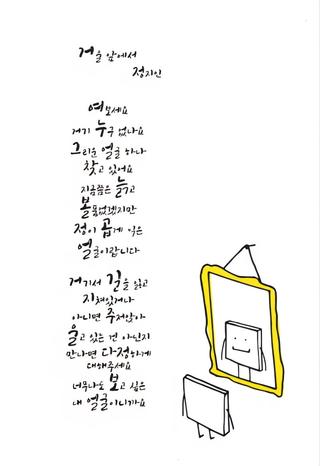 거울 앞에서
정지인
여보세요
거기 누구 없나요
그리운 얼굴 하나
찾고 있어요
지금쯤은 늙고
볼품없겠지만
정이 곱게 익은
얼굴이랍니다
거기서 길을 잃고
지쳐있거나
아니면 주저앉아
울고 있는 건 아닌지
만나면 다정하게
대해주세요
너무나도 보고 싶은
내 얼굴이니까요